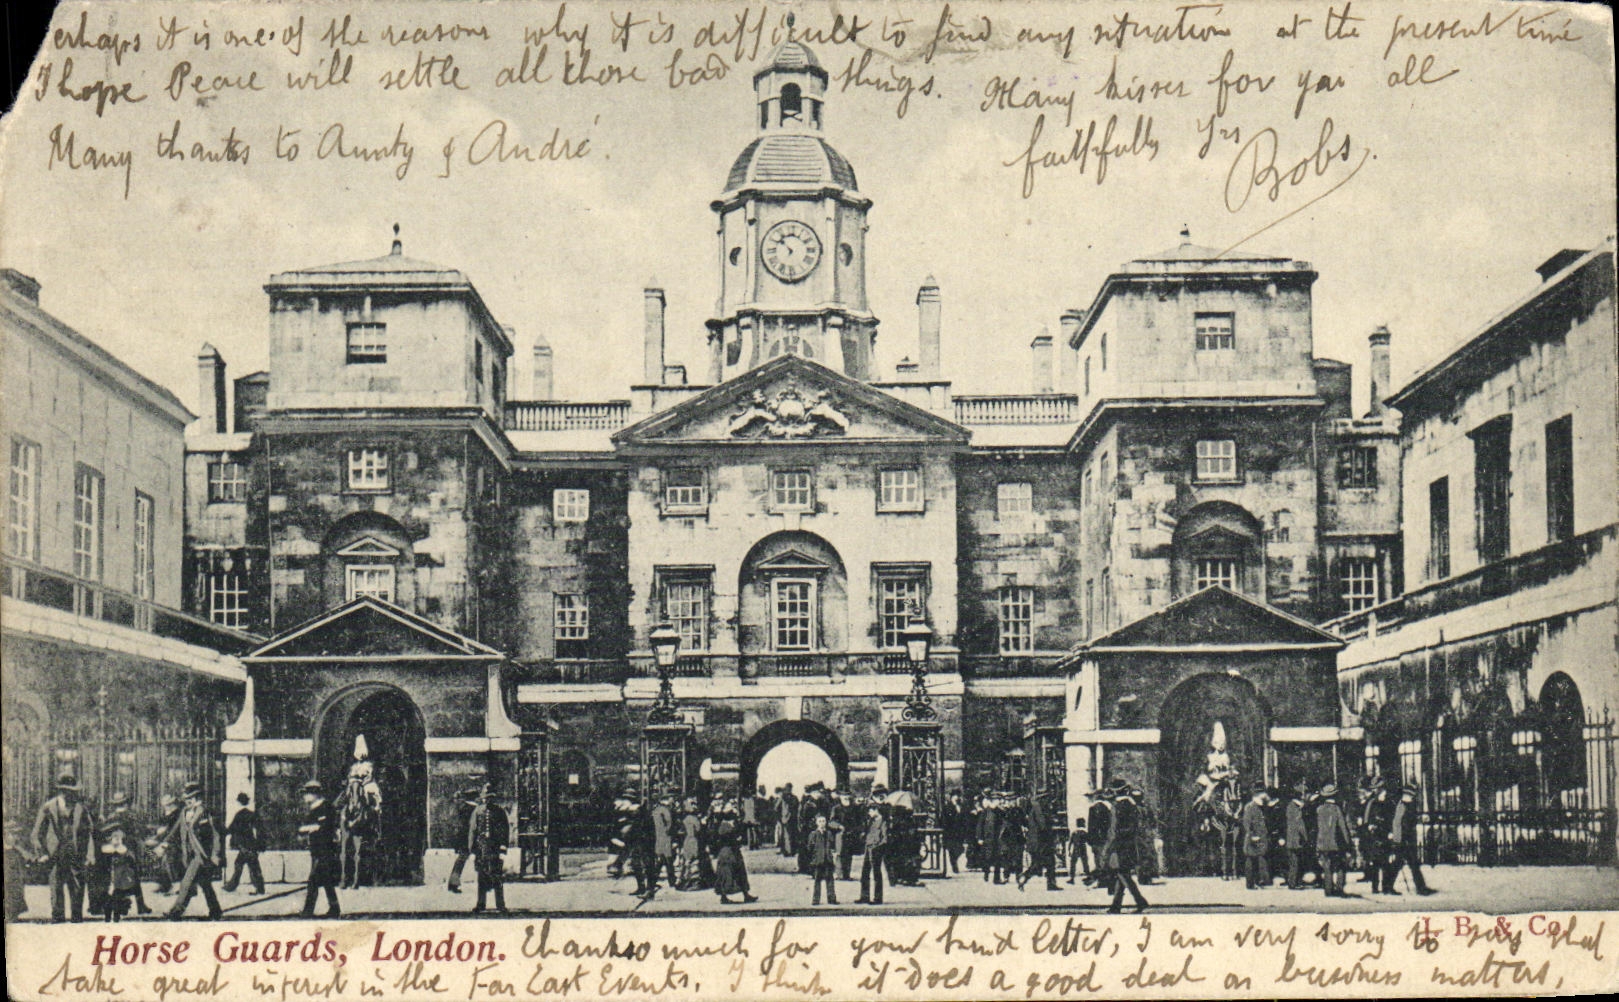 erhaps it is one of the reasons why it is difficult to find any situation at the present time
I hope Peace will settle all those bad things. Many kisses for you all
Many thanks to Aunty & André.
faithfully Yrs
Bobs.
Horse Guards, London.
L. B. & Co.
Thanks so much for your kind letter, I am very sorry to say that
take great interest in the Far East Events. I think it does a good deal on business matters,